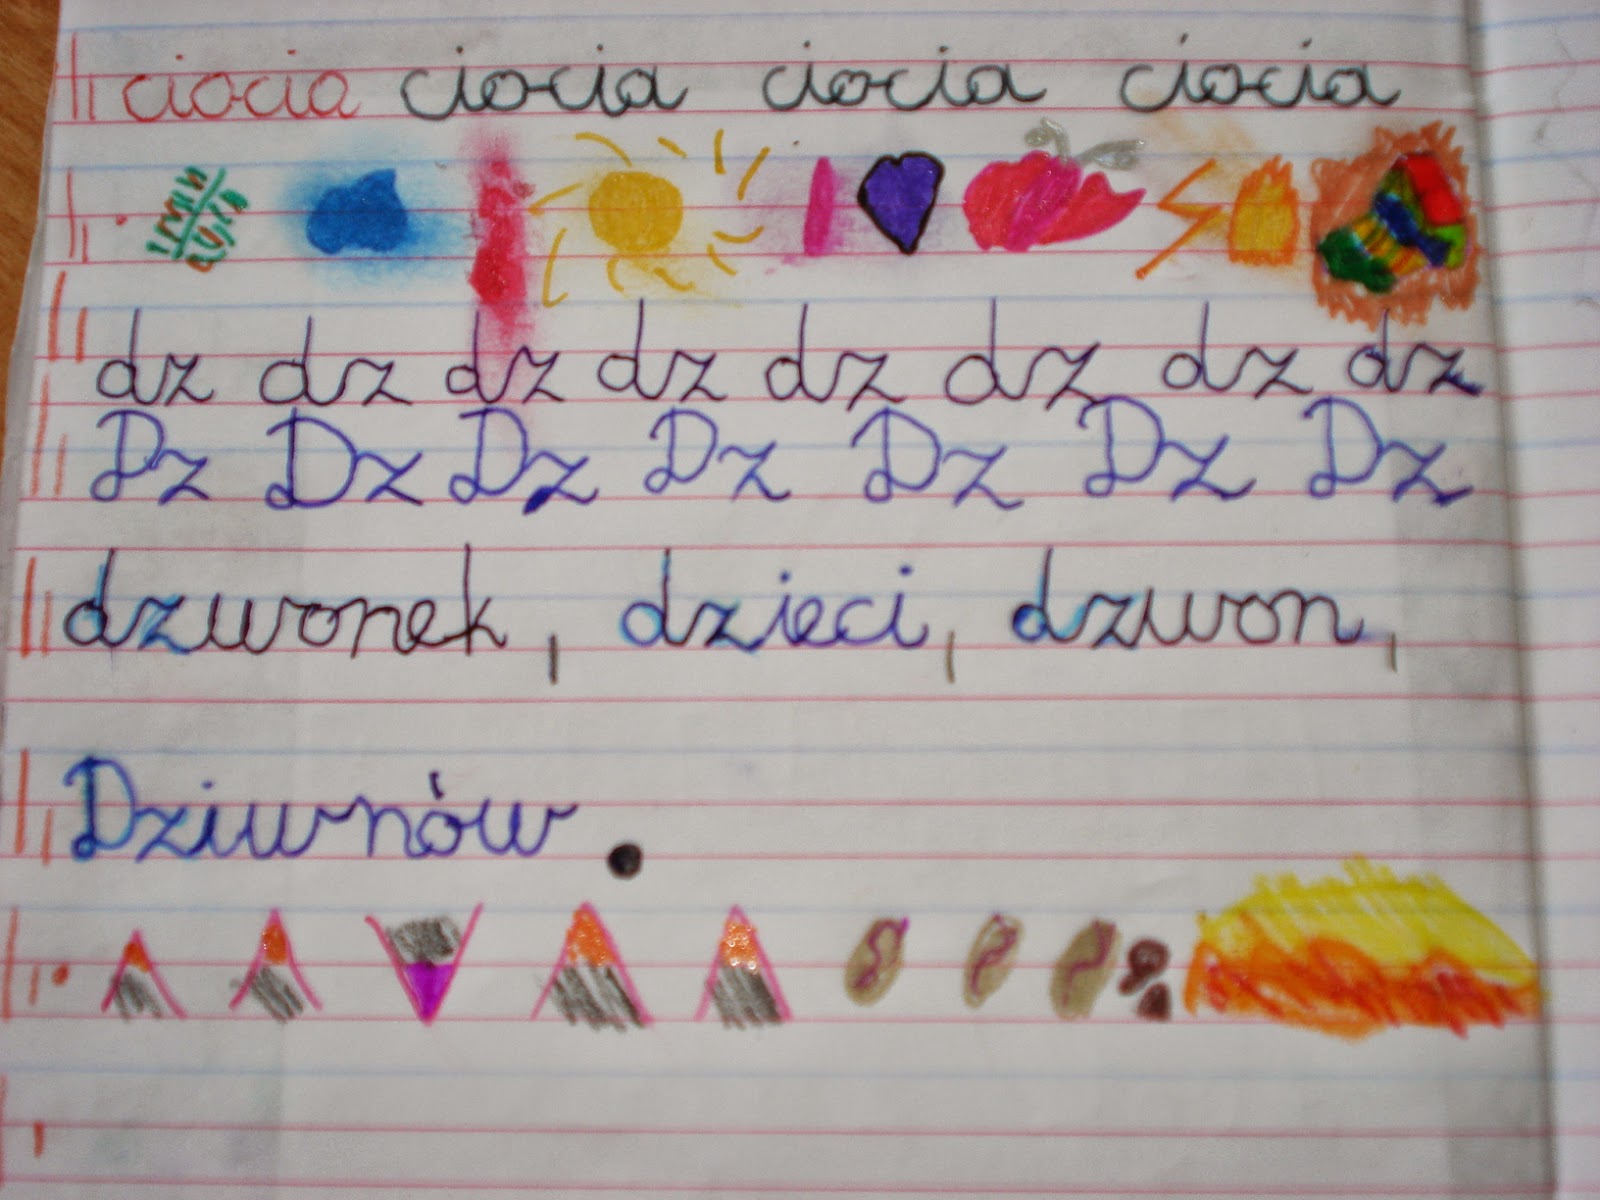 ciocia ciocia ciocia ciocia
dz dz dz dz dz dz dz dz
Dz Dz Dz Dz Dz Dz Dz
dzwonek, dzieci, dzwon,
Dziwnów.